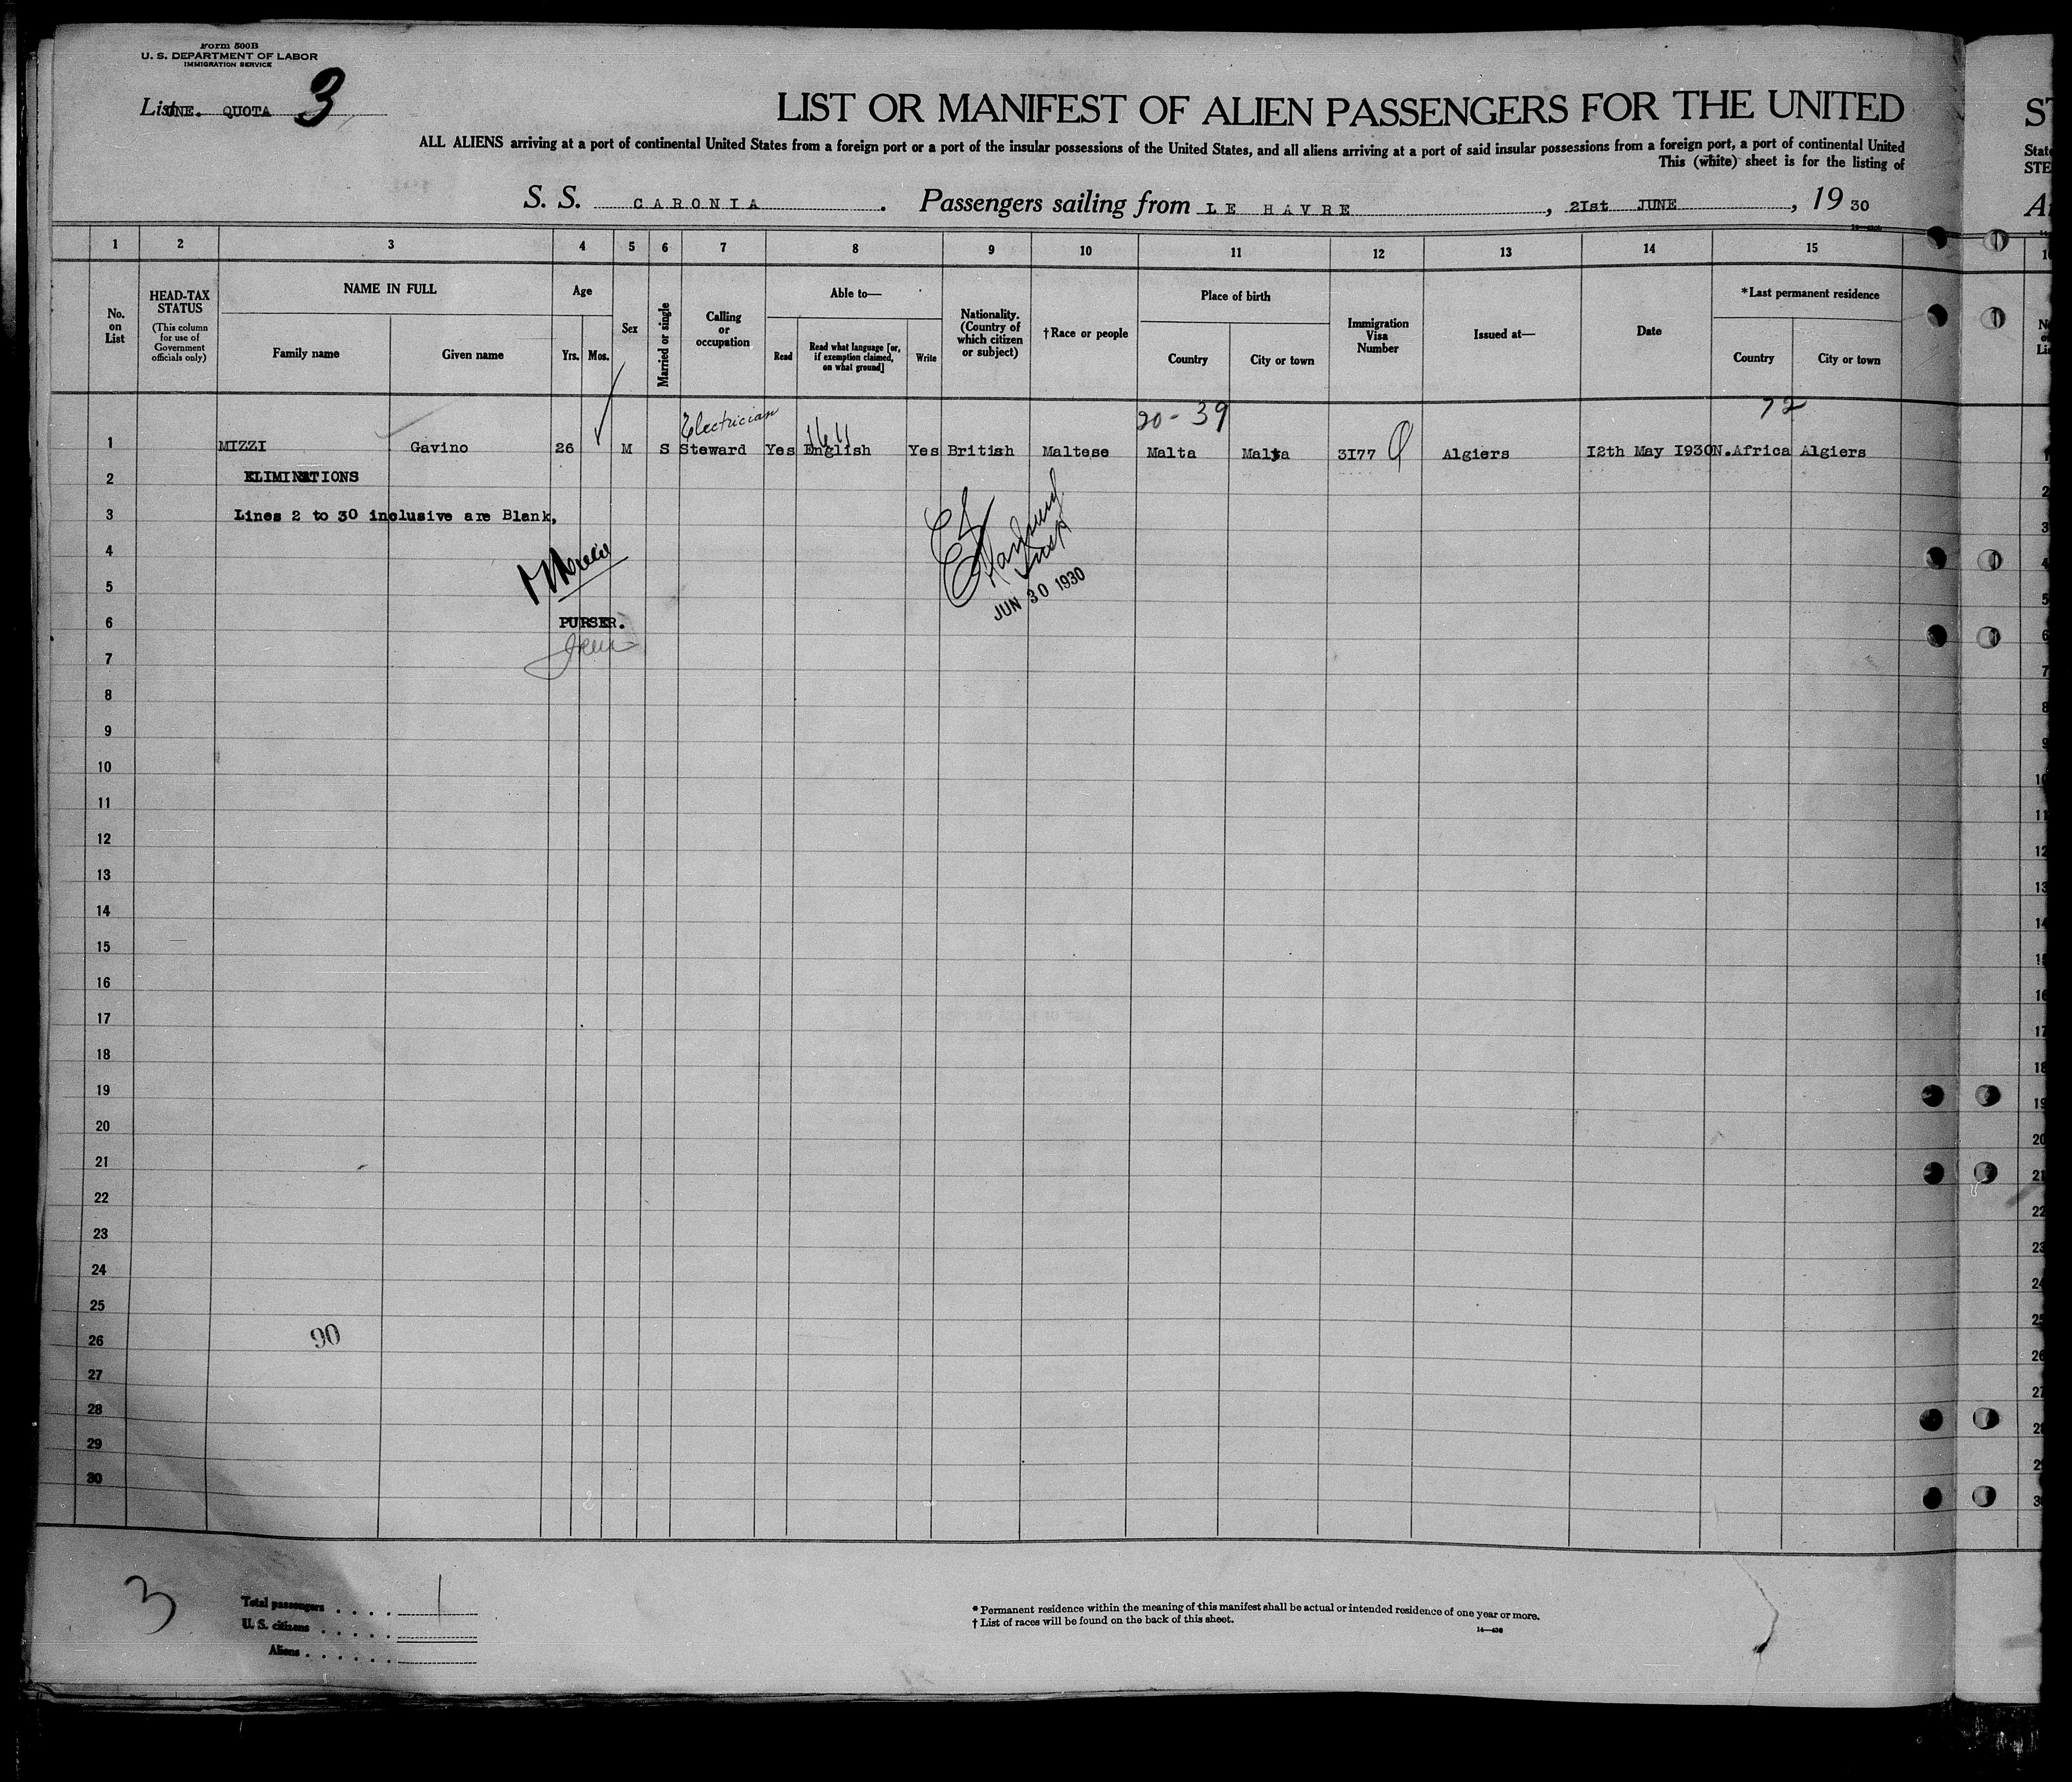 Form 500B
U. S. DEPARTMENT OF LABOR
IMMIGRATION SERVICE
List ONE. QUOTA 3
LIST OR MANIFEST OF ALIEN PASSENGERS FOR THE UNITED
ALL ALIENS arriving at a port of continental United States from a foreign port or a port of the insular possessions of the United States, and all aliens arriving at a port of said insular possessions from a foreign port, a port of continental United
This (white) sheet is for the listing of
S. S. CARONIA. Passengers sailing from LE HAVRE, 2Ist JUNE, 19 30
1 2 3 4 5 6 7 8 9 10 11 12 13 14 15
No. on List
HEAD-TAX STATUS (This column for use of Government officials only)
NAME IN FULL
Family name
Given name
Age
Yrs. Mos.
Sex
Married or single
Calling or occupation
Able to—
Read
Read what language [or, if exemption claimed, on what ground]
Write
Nationality. (Country of which citizen or subject)
†Race or people
Place of birth
Country
City or town
Immigration Visa Number
Issued at—
Date
*Last permanent residence
Country
City or town
Electrician 20-39 72
1 MIZZI Gavino 26 M S Steward Yes English Yes British Maltese Malta Malta 3I77 Q Algiers I2th May I930 N.Africa Algiers
2 ELIMINATIONS
3 Lines 2 to 30 inclusive are Blank,
4
5
JUN 30 1930
6 PURSER.
7
8
9
10
11
12
13
14
15
16
17
18
19
20
21
22
23
24
25
26 90
27
28
29
30
3
Total passengers 1
U. S. citizens
Aliens
* Permanent residence within the meaning of this manifest shall be actual or intended residence of one year or more.
† List of races will be found on the back of this sheet.
ST
State
STE